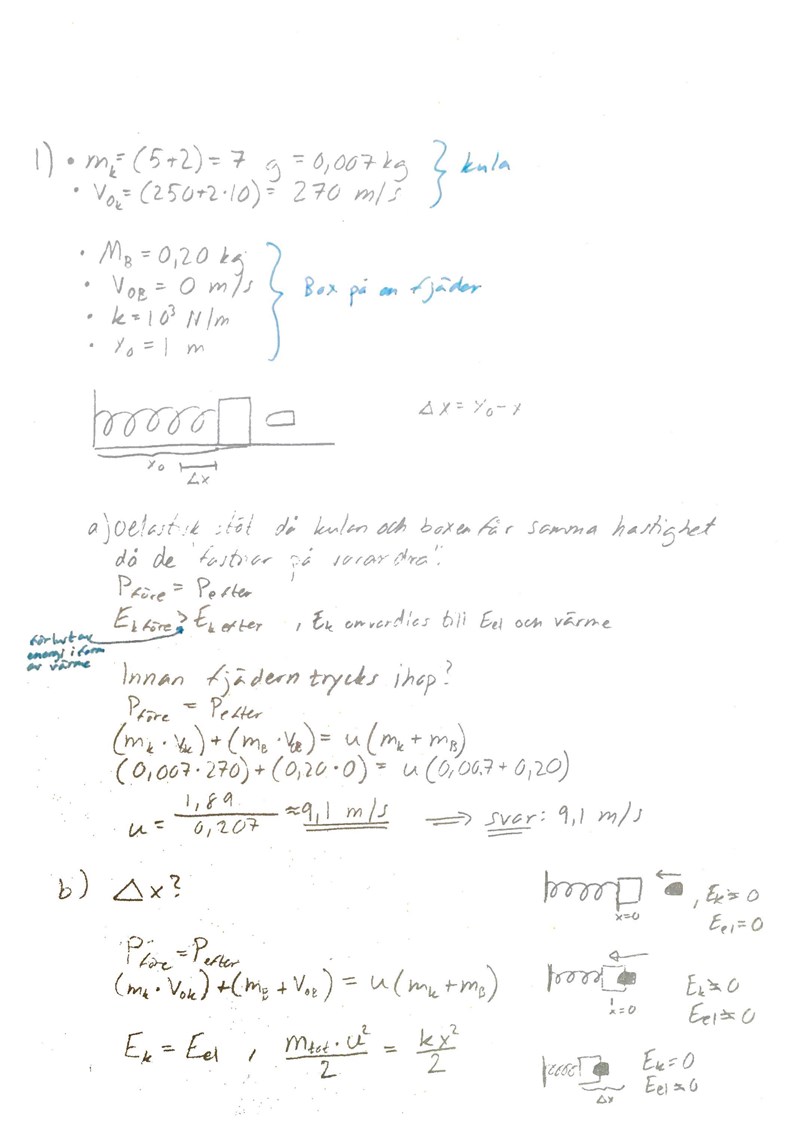 1) • mₖ = (5+2) = 7 g = 0,007 kg } kula
• V₀ₖ = (250+2·10) = 270 m/s
• M_B = 0,20 kg
• V₀B = 0 m/s } Box på en fjäder
• k = 10³ N/m
• x₀ = 1 m
Δx = x₀ - x
x₀
Δx
a) Oelastisk stöt då kulan och boxen får samma hastighet
då de "fastnar på varandra".
Pföre = Pefter
Ekföre > Ekefter , Ek omvandlas till Eel och värme
förlust av
energi i form
av värme
Innan fjädern trycks ihop?
Pföre = Pefter
(mₖ · V₀ₖ) + (m_B · V₀B) = u(mₖ + m_B)
(0,007·270) + (0,20·0) = u(0,007 + 0,20)
u = 1,89 / 0,207 ≈ 9,1 m/s ⟹ svar: 9,1 m/s
b) Δx?
x=0
, Ek ≠ 0
Eel = 0
Pföre = Pefter
(mₖ · V₀ₖ) + (m_B + V₀B) = u(mₖ + m_B)
x=0
Ek ≠ 0
Eel ≠ 0
Ek = Eel , mtot · u² / 2 = kx² / 2
Ek = 0
Eel ≠ 0
Δx